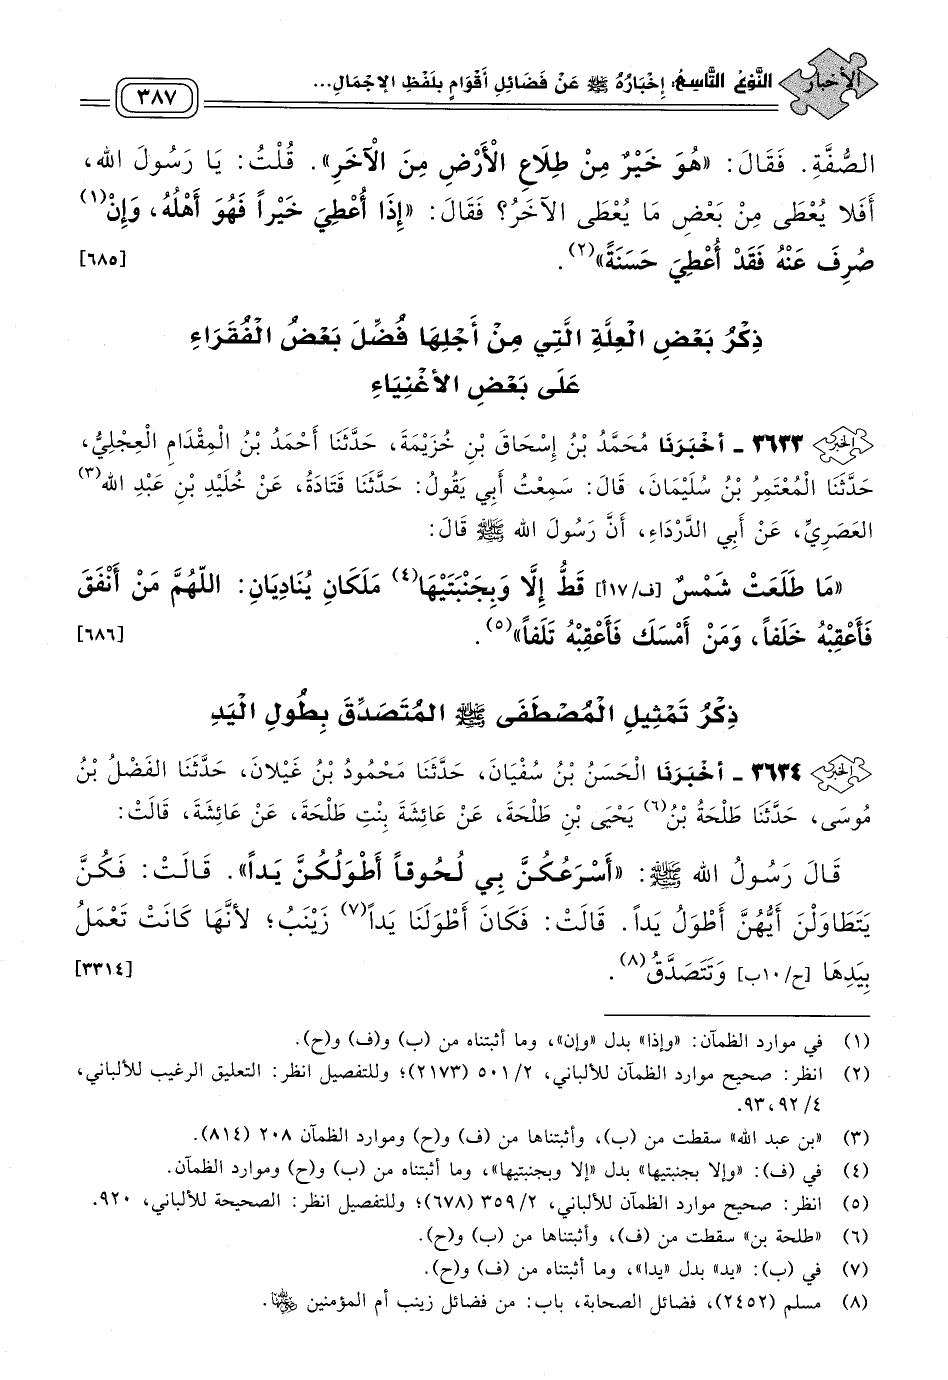 الأخبار
النَّوْعُ التَّاسِعُ: إِخْبَارُهُ ﷺ عَنْ فَضَائِلِ أَقْوَامٍ بِلَفْظِ الإِجْمَالِ...
٣٨٧
الصُّفَّةِ. فَقَالَ: «هُوَ خَيْرٌ مِنْ طِلَاعِ الْأَرْضِ مِنَ الْآخَرِ». قُلْتُ: يَا رَسُولَ الله،
أَفَلا يُعْطَى مِنْ بَعْضِ مَا يُعْطَى الآخَرُ؟ فَقَالَ: «إِذَا أُعْطِيَ خَيْراً فَهُوَ أَهْلُهُ، وَإِنْ(١)
صُرِفَ عَنْهُ فَقَدْ أُعْطِيَ حَسَنَةً»(٢). [٦٨٥]
ذِكْرُ بَعْضِ الْعِلَّةِ الَّتِي مِنْ أَجْلِهَا فُضِّلَ بَعْضُ الْفُقَرَاءِ
عَلَى بَعْضِ الأَغْنِيَاءِ
الخبر ٣٦٣٣ - أَخْبَرَنَا مُحَمَّدُ بْنُ إِسْحَاقَ بْنِ خُزَيْمَةَ، حَدَّثَنَا أَحْمَدُ بْنُ الْمِقْدَامِ الْعِجْلِيُّ،
حَدَّثَنَا الْمُعْتَمِرُ بْنُ سُلَيْمَانَ، قَالَ: سَمِعْتُ أَبِي يَقُولُ: حَدَّثَنَا قَتَادَةُ، عَنْ خُلَيْدِ بْنِ عَبْدِ الله(٣)
العَصَرِيِّ، عَنْ أَبِي الدَّرْدَاءِ، أَنَّ رَسُولَ الله ﷺ قَالَ:
«مَا طَلَعَتْ شَمْسٌ [ف/١٧أ] قَطُّ إِلَّا وَبِجَنْبَتَيْهَا(٤) مَلَكَانِ يُنَادِيَانِ: اللّهُمَّ مَنْ أَنْفَقَ
فَأَعْقِبْهُ خَلَفاً، وَمَنْ أَمْسَكَ فَأَعْقِبْهُ تَلَفاً»(٥). [٦٨٦]
ذِكْرُ تَمْثِيلِ الْمُصْطَفَى ﷺ المُتَصَدِّقَ بِطُولِ الْيَدِ
الخبر ٣٦٣٤ - أَخْبَرَنَا الْحَسَنُ بْنُ سُفْيَانَ، حَدَّثَنَا مَحْمُودُ بْنُ غَيْلانَ، حَدَّثَنَا الفَضْلُ بْنُ
مُوسَى، حَدَّثَنَا طَلْحَةُ بْنُ(٦) يَحْيَى بْنِ طَلْحَةَ، عَنْ عَائِشَةَ بِنْتِ طَلْحَةَ، عَنْ عَائِشَةَ، قَالَتْ:
قَالَ رَسُولُ الله ﷺ: «أَسْرَعُكُنَّ بِي لُحُوقاً أَطْوَلُكُنَّ يَداً». قَالَتْ: فَكُنَّ
يَتَطَاوَلْنَ أَيُّهُنَّ أَطْوَلُ يَداً. قَالَتْ: فَكَانَ أَطْوَلَنَا يَداً(٧) زَيْنَبُ؛ لأَنَّهَا كَانَتْ تَعْمَلُ
بِيَدِهَا [ح/١٠ب] وَتَتَصَدَّقُ(٨). [٣٣١٤]
(١) في موارد الظمآن: «وإذا» بدل «وإن»، وما أثبتناه من (ب) و(ف) و(ح).
(٢) انظر: صحيح موارد الظمآن للألباني، ٥٠١/٢ (٢١٧٣)؛ وللتفصيل انظر: التعليق الرغيب للألباني،
٤/ ٩٢، ٩٣.
(٣) «بن عبد الله» سقطت من (ب)، وأثبتناها من (ف) و(ح) وموارد الظمآن ٢٠٨ (٨١٤).
(٤) في (ف): «وإلا بجنبتيها» بدل «إلا وبجنبتيها»، وما أثبتناه من (ب) و(ح) وموارد الظمآن.
(٥) انظر: صحيح موارد الظمآن للألباني، ٣٥٩/٢ (٦٧٨)؛ وللتفصيل انظر: الصحيحة للألباني، ٩٢٠.
(٦) «طلحة بن» سقطت من (ف)، وأثبتناها من (ب) و(ح).
(٧) في (ب): «يد» بدل «يدا»، وما أثبتناه من (ف) و(ح).
(٨) مسلم (٢٤٥٢)، فضائل الصحابة، باب: من فضائل زينب أم المؤمنين رضي الله عنها.